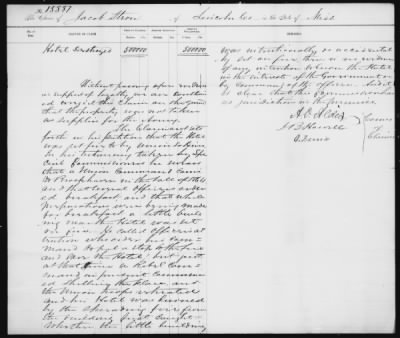 No. 15557
The Claim of Jacob Strou of Lincoln Co. State of Miss
NATURE OF CLAIM
REMARKS
Hotel destroyed 5000.00 5000.00
Without passing upon evidence
in support of loyalty we are constrained
to reject this claim on the ground
that the property was not taken
as supplies for the Army.
The Claimant sets
forth in his petition that the Hotel
was set fire to by
In his testimony taken by Special
Commissioner he swears
that a Union Command came
to in the fall of 1864
and that several Officers ordered
breakfast and that while
preparations were being made
for breakfast a little building
near the Hotel was set
on fire. He called Officers'
attention who order his
to put a stop to the fire
and save the Hotel but just
at that time a Rebel Command
commenced
shelling the place and
the Union troops retreated
and his Hotel was burned
by the spreading fire from
the building first caught.
Whether the little building
was intentionally or accidentally
set on fire there is no evidence
of any intention to burn the Hotel
in the interests of the Government or
by Command of the officer. And it
is clear that the Commissioners
no jurisdiction in the premises.
A. O. Aldis
J. B. Howell
O. Ferriss
Coms. of Claims